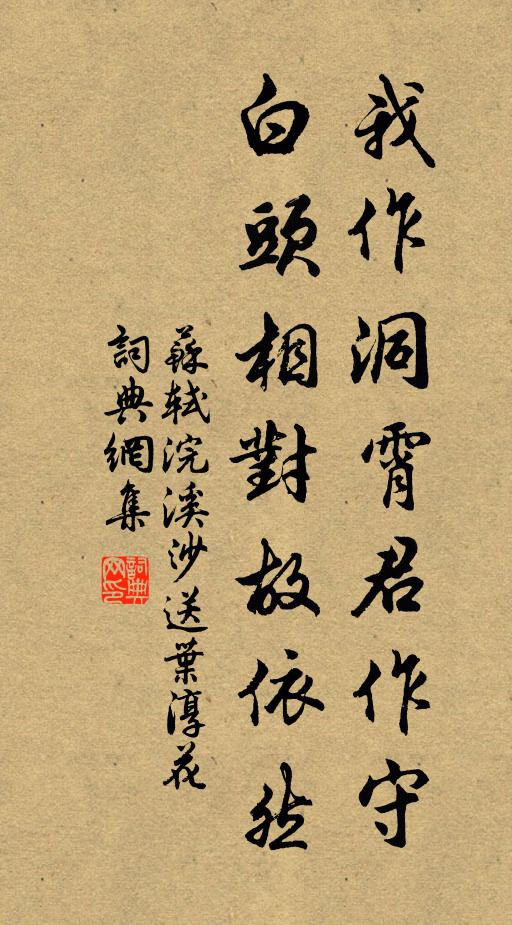 我作洞霄君作守
白頭相對故依然
蘇軾浣溪沙送葉淳花
詞典網集
詞典網印